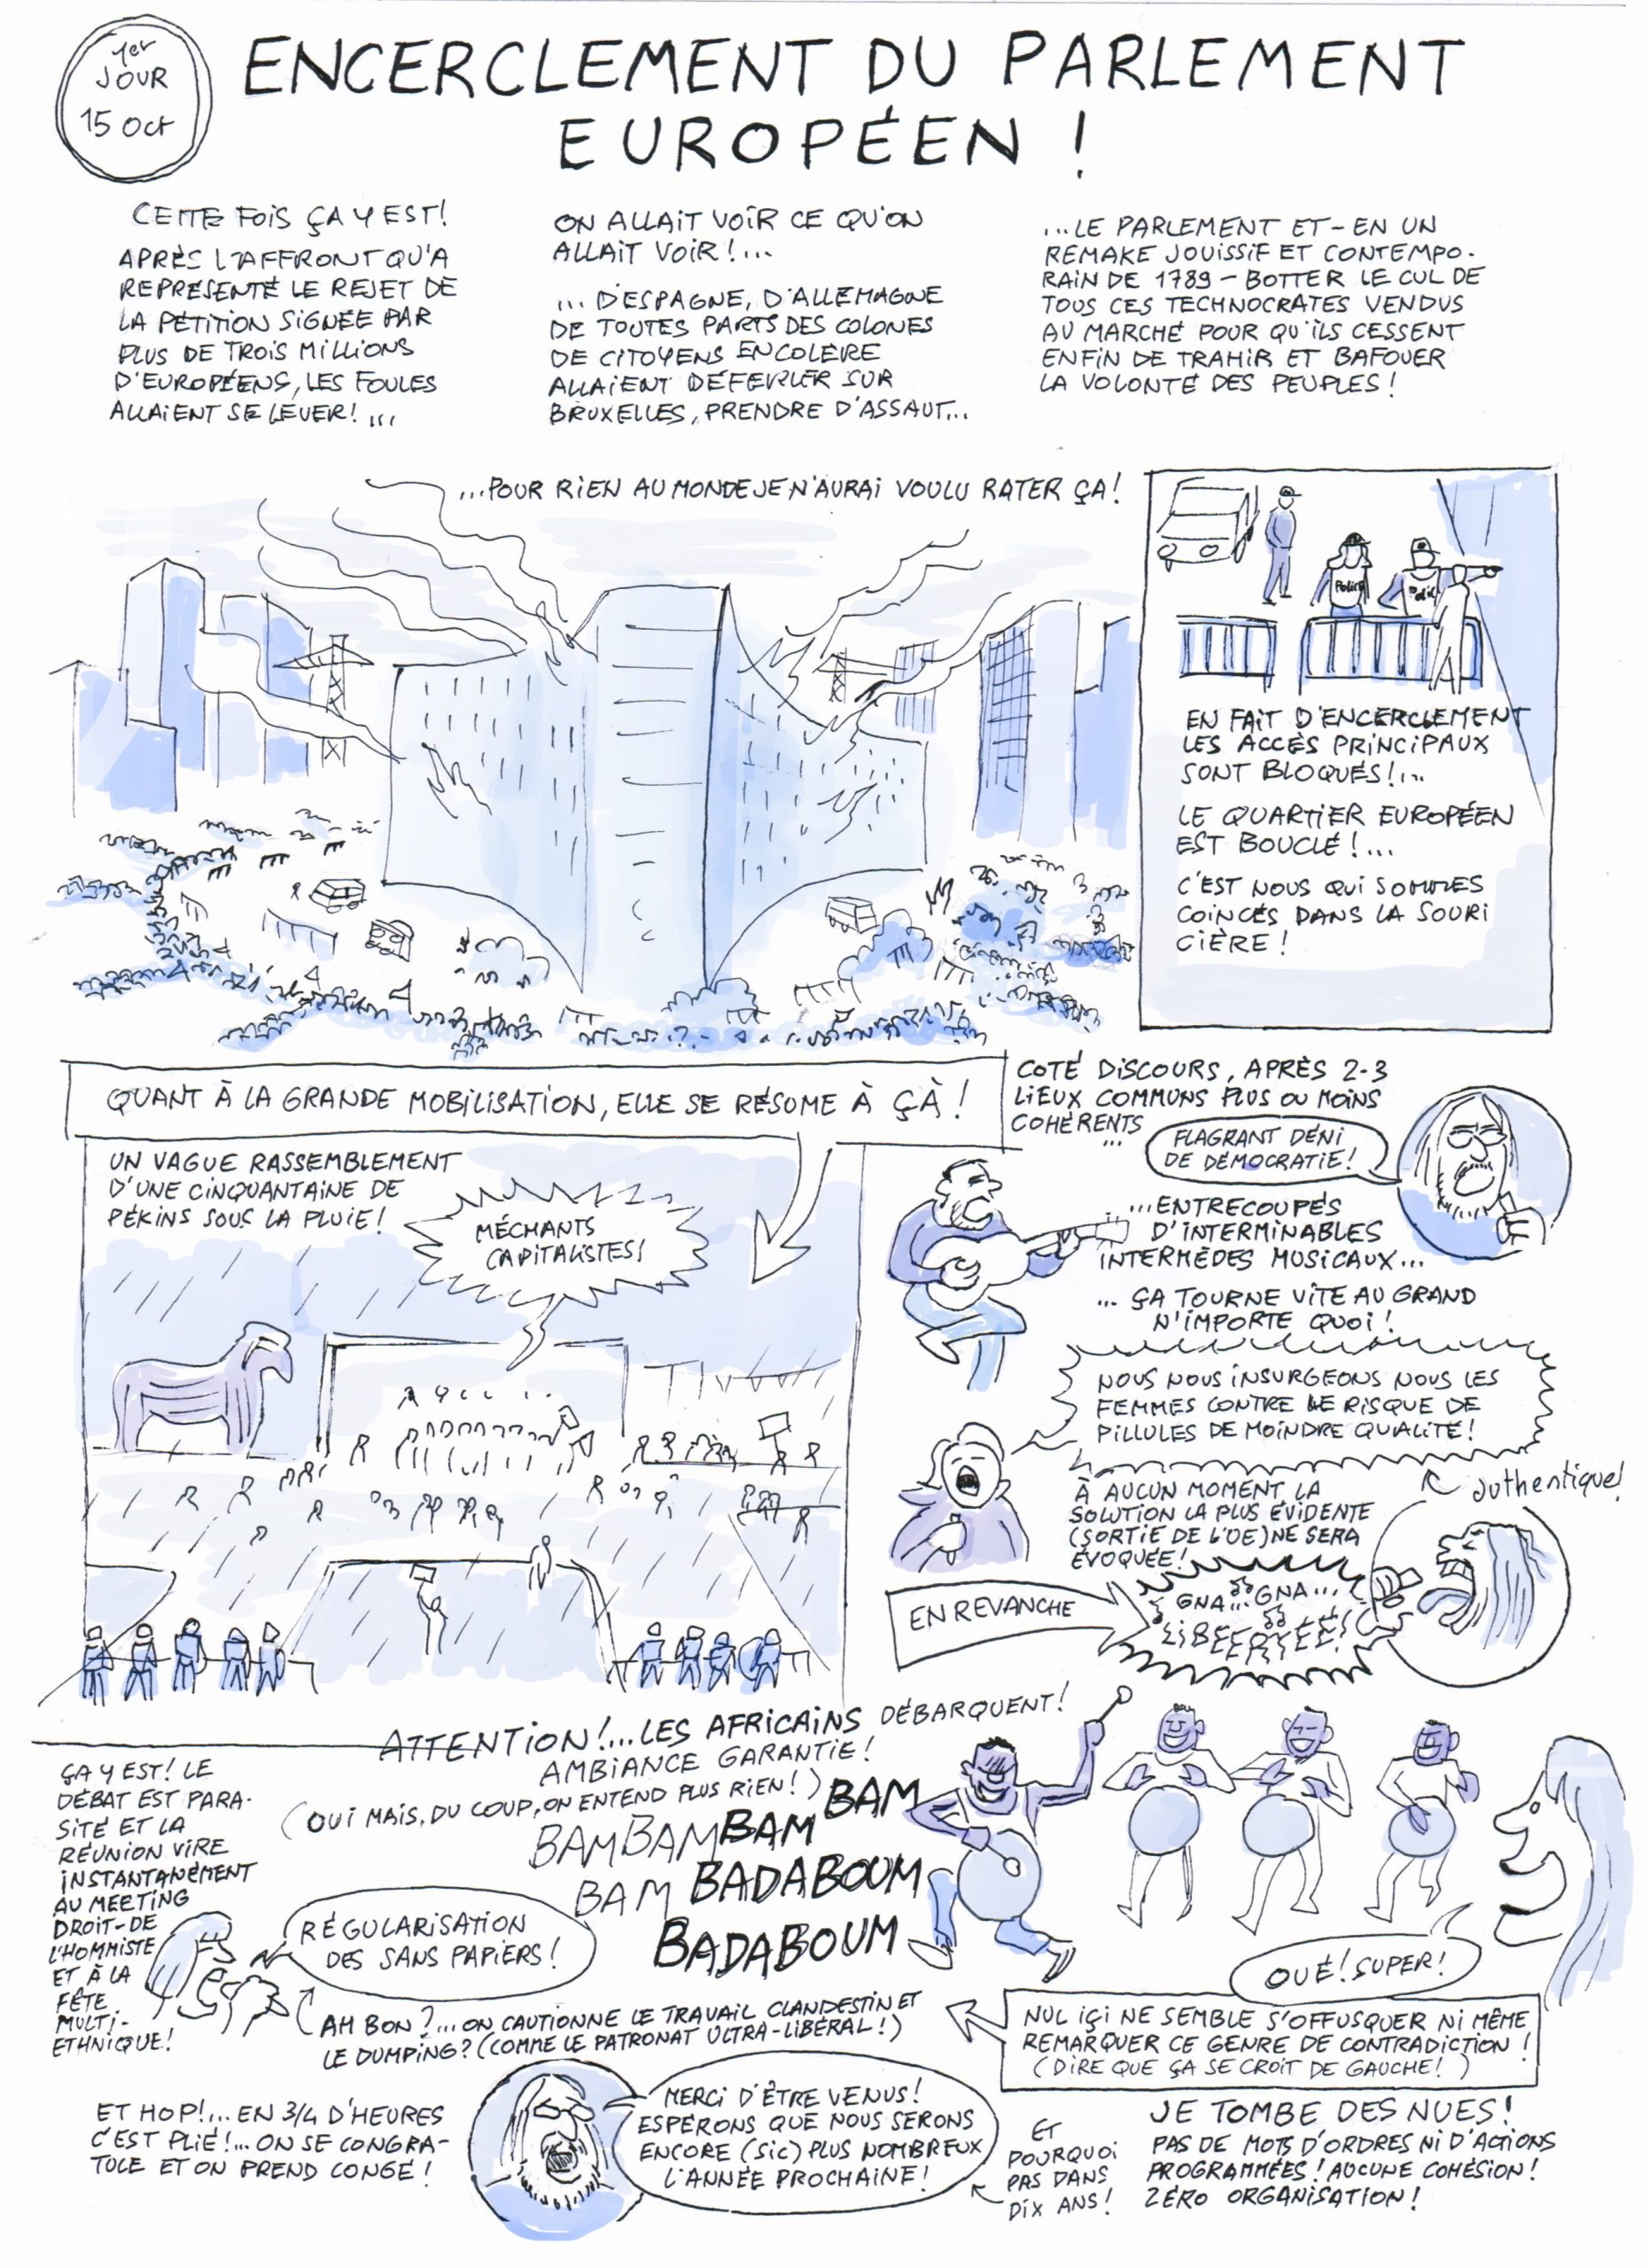 1er
JOUR
15 Oct
ENCERCLEMENT DU PARLEMENT
EUROPÉEN !
CETTE FOIS ÇA Y EST !
APRÈS L'AFFRONT QU'A
REPRÉSENTÉ LE REJET DE
LA PÉTITION SIGNÉE PAR
PLUS DE TROIS MILLIONS
D'EUROPÉENS, LES FOULES
ALLAIENT SE LEVER! ...
ON ALLAIT VOIR CE QU'ON
ALLAIT VOIR !...
... D'ESPAGNE, D'ALLEMAGNE
DE TOUTES PARTS DES COLONES
DE CITOYENS EN COLÈRE
ALLAIENT DÉFERLER SUR
BRUXELLES, PRENDRE D'ASSAUT...
...LE PARLEMENT ET - EN UN
REMAKE JOUISSIF ET CONTEMPO-
RAIN DE 1789 - BOTTER LE CUL DE
TOUS CES TECHNOCRATES VENDUS
AU MARCHÉ POUR QU'ILS CESSENT
ENFIN DE TRAHIR ET BAFOUER
LA VOLONTÉ DES PEUPLES !
...POUR RIEN AU MONDE JE N'AURAI VOULU RATER ÇA !
POLICE
EN FAIT D'ENCERCLEMENT
LES ACCÈS PRINCIPAUX
SONT BLOQUÉS !...
LE QUARTIER EUROPÉEN
EST BOUCLÉ !...
C'EST NOUS QUI SOMMES
COINCÉS DANS LA SOURI
CIÈRE !
QUANT À LA GRANDE MOBILISATION, ELLE SE RÉSUME À ÇÀ !
UN VAGUE RASSEMBLEMENT
D'UNE CINQUANTAINE DE
PÉKINS SOUS LA PLUIE !
MÉCHANTS
CAPITALISTES !
COTÉ DISCOURS, APRÈS 2-3
LIEUX COMMUNS PLUS OU MOINS
COHÉRENTS
...
FLAGRANT DÉNI
DE DÉMOCRATIE !
...ENTRECOUPÉS
D'INTERMINABLES
INTERMÈDES MUSICAUX...
... ÇA TOURNE VITE AU GRAND
N'IMPORTE QUOI !
NOUS NOUS INSURGEONS NOUS LES
FEMMES CONTRE LE RISQUE DE
PILLULES DE MOINDRE QUALITÉ !
authentique!
À AUCUN MOMENT LA
SOLUTION LA PLUS ÉVIDENTE
(SORTIE DE L'UE) NE SERA
ÉVOQUÉE !
EN REVANCHE
GNA... GNA...
LIBEERTÉÉ !
ATTENTION !...LES AFRICAINS DÉBARQUENT !
AMBIANCE GARANTIE !
(OUI MAIS, DU COUP, ON ENTEND PLUS RIEN !)
BAM BAM BAM BAM
BAM BADABOUM
BADABOUM
ÇA Y EST ! LE
DÉBAT EST PARA-
SITÉ ET LA
RÉUNION VIRE
INSTANTANÉMENT
AU MEETING
DROIT-DE
L'HOMMISTE
ET À LA
FÊTE
MULTI-
ETHNIQUE !
RÉGULARISATION
DES SANS PAPIERS !
AH BON ?... ON CAUTIONNE LE TRAVAIL CLANDESTIN ET
LE DUMPING ? (COMME LE PATRONAT ULTRA-LIBÉRAL !)
OUÉ ! SUPER !
NUL IÇI NE SEMBLE S'OFFUSQUER NI MÊME
REMARQUER CE GENRE DE CONTRADICTION !
(DIRE QUE ÇA SE CROIT DE GAUCHE ! )
ET HOP !... EN 3/4 D'HEURES
C'EST PLIÉ !... ON SE CONGRA-
TULE ET ON PREND CONGÉ !
MERCI D'ÊTRE VENUS !
ESPÉRONS QUE NOUS SERONS
ENCORE (SIC) PLUS NOMBREUX
L'ANNÉE PROCHAINE !
ET
POURQUOI
PAS DANS
DIX ANS !
JE TOMBE DES NUES !
PAS DE MOTS D'ORDRES NI D'ACTIONS
PROGRAMMÉES ! AUCUNE COHÉSION !
ZÉRO ORGANISATION !